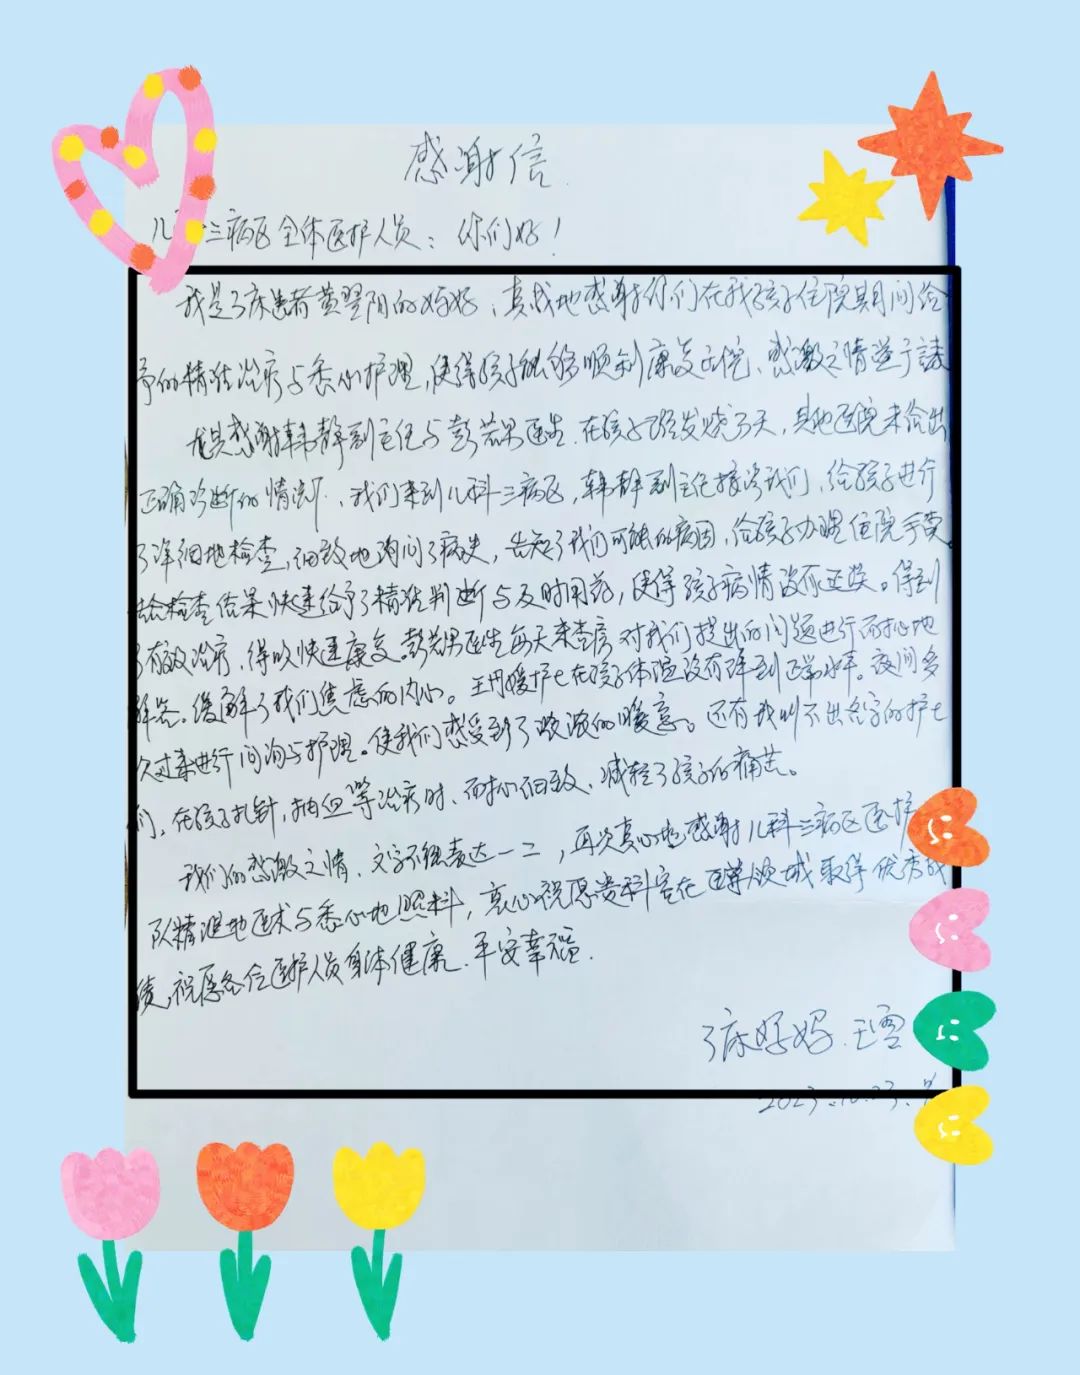 感谢信
儿 三病区全体医护人员：你们好！
我是3床患者黄翌阳的妈妈，真诚地感谢你们在我孩子住院期间给
予的精准治疗与悉心护理，使得孩子能够顺利康复出院、感激之情溢于言表
尤其感谢韩静副主任与彭若男医生.在孩子已经发烧3天，其他医院未给出
正确诊断的情况下、我们来到儿科三病区，韩静副主任接诊我们，给孩子进行
了详细地检查，细致地询问了病史，告知了我们可能的病因，给孩子办理住院手续
检查结果快速给予了精准判断与及时用药，使得孩子病情没有延误。得到
了有效治疗，得以快速康复。彭若男医生每天来查房对我们提出的问题进行耐心地
解答。缓解了我们焦虑的内心。王丹媛护士在孩子体温没有降到正常水平。夜间多
次过来进行问询与护理。使我们感受到了浓浓的暖意。还有我叫不出名字的护士
们，在孩子扎针，抽血等治疗时、耐心细致、减轻了孩子的痛苦。
我们的感激之情、文字不能表达一二，再次真心地感谢儿科三病区医护
队精湛地医术与悉心地照料，衷心祝愿贵科室在医学领域取得优秀成
绩，祝愿各位医护人员身体健康.平安幸福.
3床妈妈.王雪
2023.10.23.